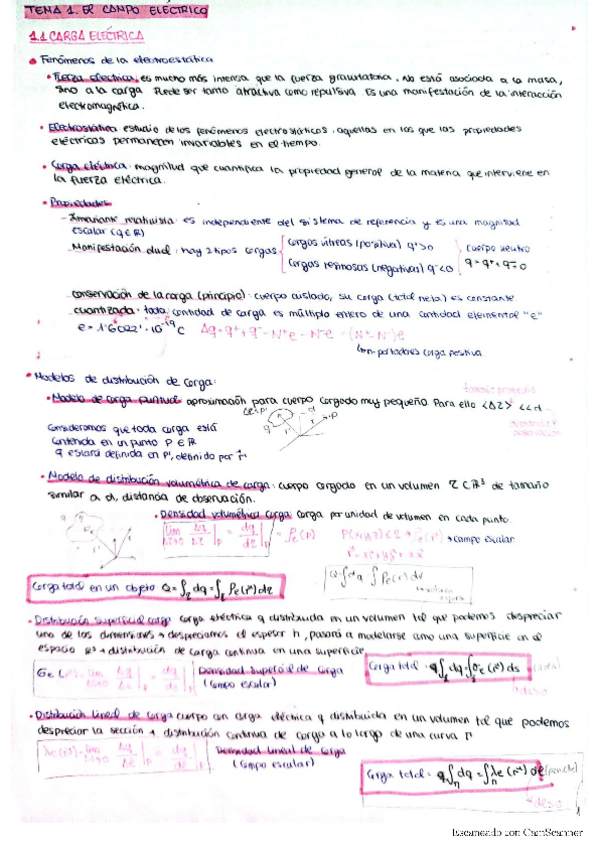 TEMA 1. EL CAMPO ELÉCTRICO
1.1 CARGA ELÉCTRICA
• Fenómenos de la electroestática
• Fuerza eléctrica: es mucho más intensa que la fuerza gravitatoria. No está asociada a la masa,
sino a la carga. Puede ser tanto atractiva como repulsiva. Es una manifestación de la interacción
electromagnética.
• Electrostática: estudio de los fenómenos electrostáticos: aquellas en los que las propiedades
eléctricas permanecen invariables en el tiempo.
• Carga eléctrica: magnitud que cuantifica la propiedad general de la materia que interviene en
la fuerza eléctrica.
• Propiedades
- Invariante: es independiente del sistema de referencia y es una magnitud
escalar (q∈ℝ)
Manifestación dual: hay 2 tipos cargas
cargas vítreas (positiva) q⁺>0
cargas resinosas (negativas) q⁻<0
cuerpo neutro
q = q⁺ + q⁻ = 0
conservación de la carga (principio): cuerpo aislado, su carga (total neta) es constante
cuantizada: toda cantidad de carga es múltiplo entero de una cantidad elemental "e"
e = 1'6022 · 10⁻¹⁹ C Δq = q⁺ + q⁻ = N⁺e - N⁻e = (N⁺ - N⁻)e
portadores carga positiva
• Modelos de distribución de carga:
tamaño promedio
• Modelo de carga puntual: aproximación para cuerpo cargado muy pequeño. Para ello <ΔZ> << d
Consideramos que toda carga está
contenida en un punto P ∈ ℝ
q estará definida en P', definido por r⃗'
• Modelo de distribución volumétrica de carga: cuerpo cargado en un volumen Z ⊂ ℝ³ de tamaño
similar a d, distancia de observación.
• Densidad volumétrica carga: carga por unidad de volumen en cada punto.
→ campo escalar
Carga total en un objeto Q = ∫ dq = ∫ ρe(r⃗) dz
• Distribución superficial carga: carga eléctrica q distribuida en un volumen tal que podemos despreciar
una de las dimensiones → despreciamos el espesor h, pasará a modelarse como una superficie en el
espacio ℝ³ → distribución de carga continua en una superficie
Densidad Superficial de Carga
(campo escalar)
Carga total =
• Distribución lineal de carga: cuerpo con carga eléctrica q distribuida en un volumen tal que podemos
despreciar la sección → distribución continua de carga a lo largo de una curva Γ
Densidad Lineal de Carga
(campo escalar)
Carga total =
1
Escaneado con CamScanner